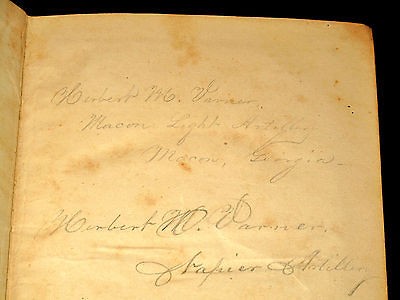 Herbert M. Varner,
Macon Light Artillery
Macon, Georgia
Herbert M. Varner,
Napier Artillery